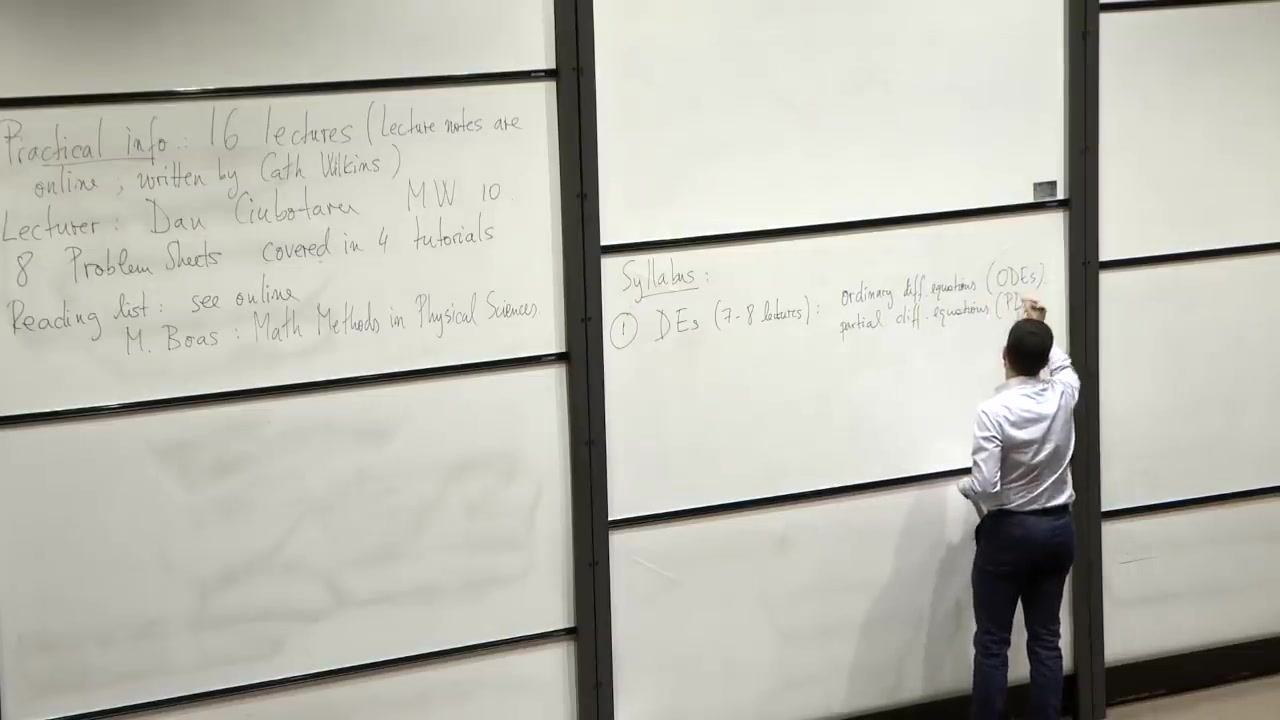 Practical info: 16 lectures (Lecture notes are
online, written by Cath Wilkins)
Lecturer: Dan Ciubotaru MW 10
8 Problem Sheets covered in 4 tutorials
Reading list: see online
M. Boas: Math Methods in Physical Sciences
Syllabus:
① DEs (7-8 lectures): ordinary diff. equations (ODEs)
partial diff. equations (P